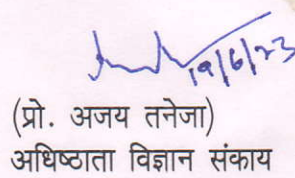 19/6/23
(प्रो. अजय तनेजा)
अधिष्ठाता विज्ञान संकाय